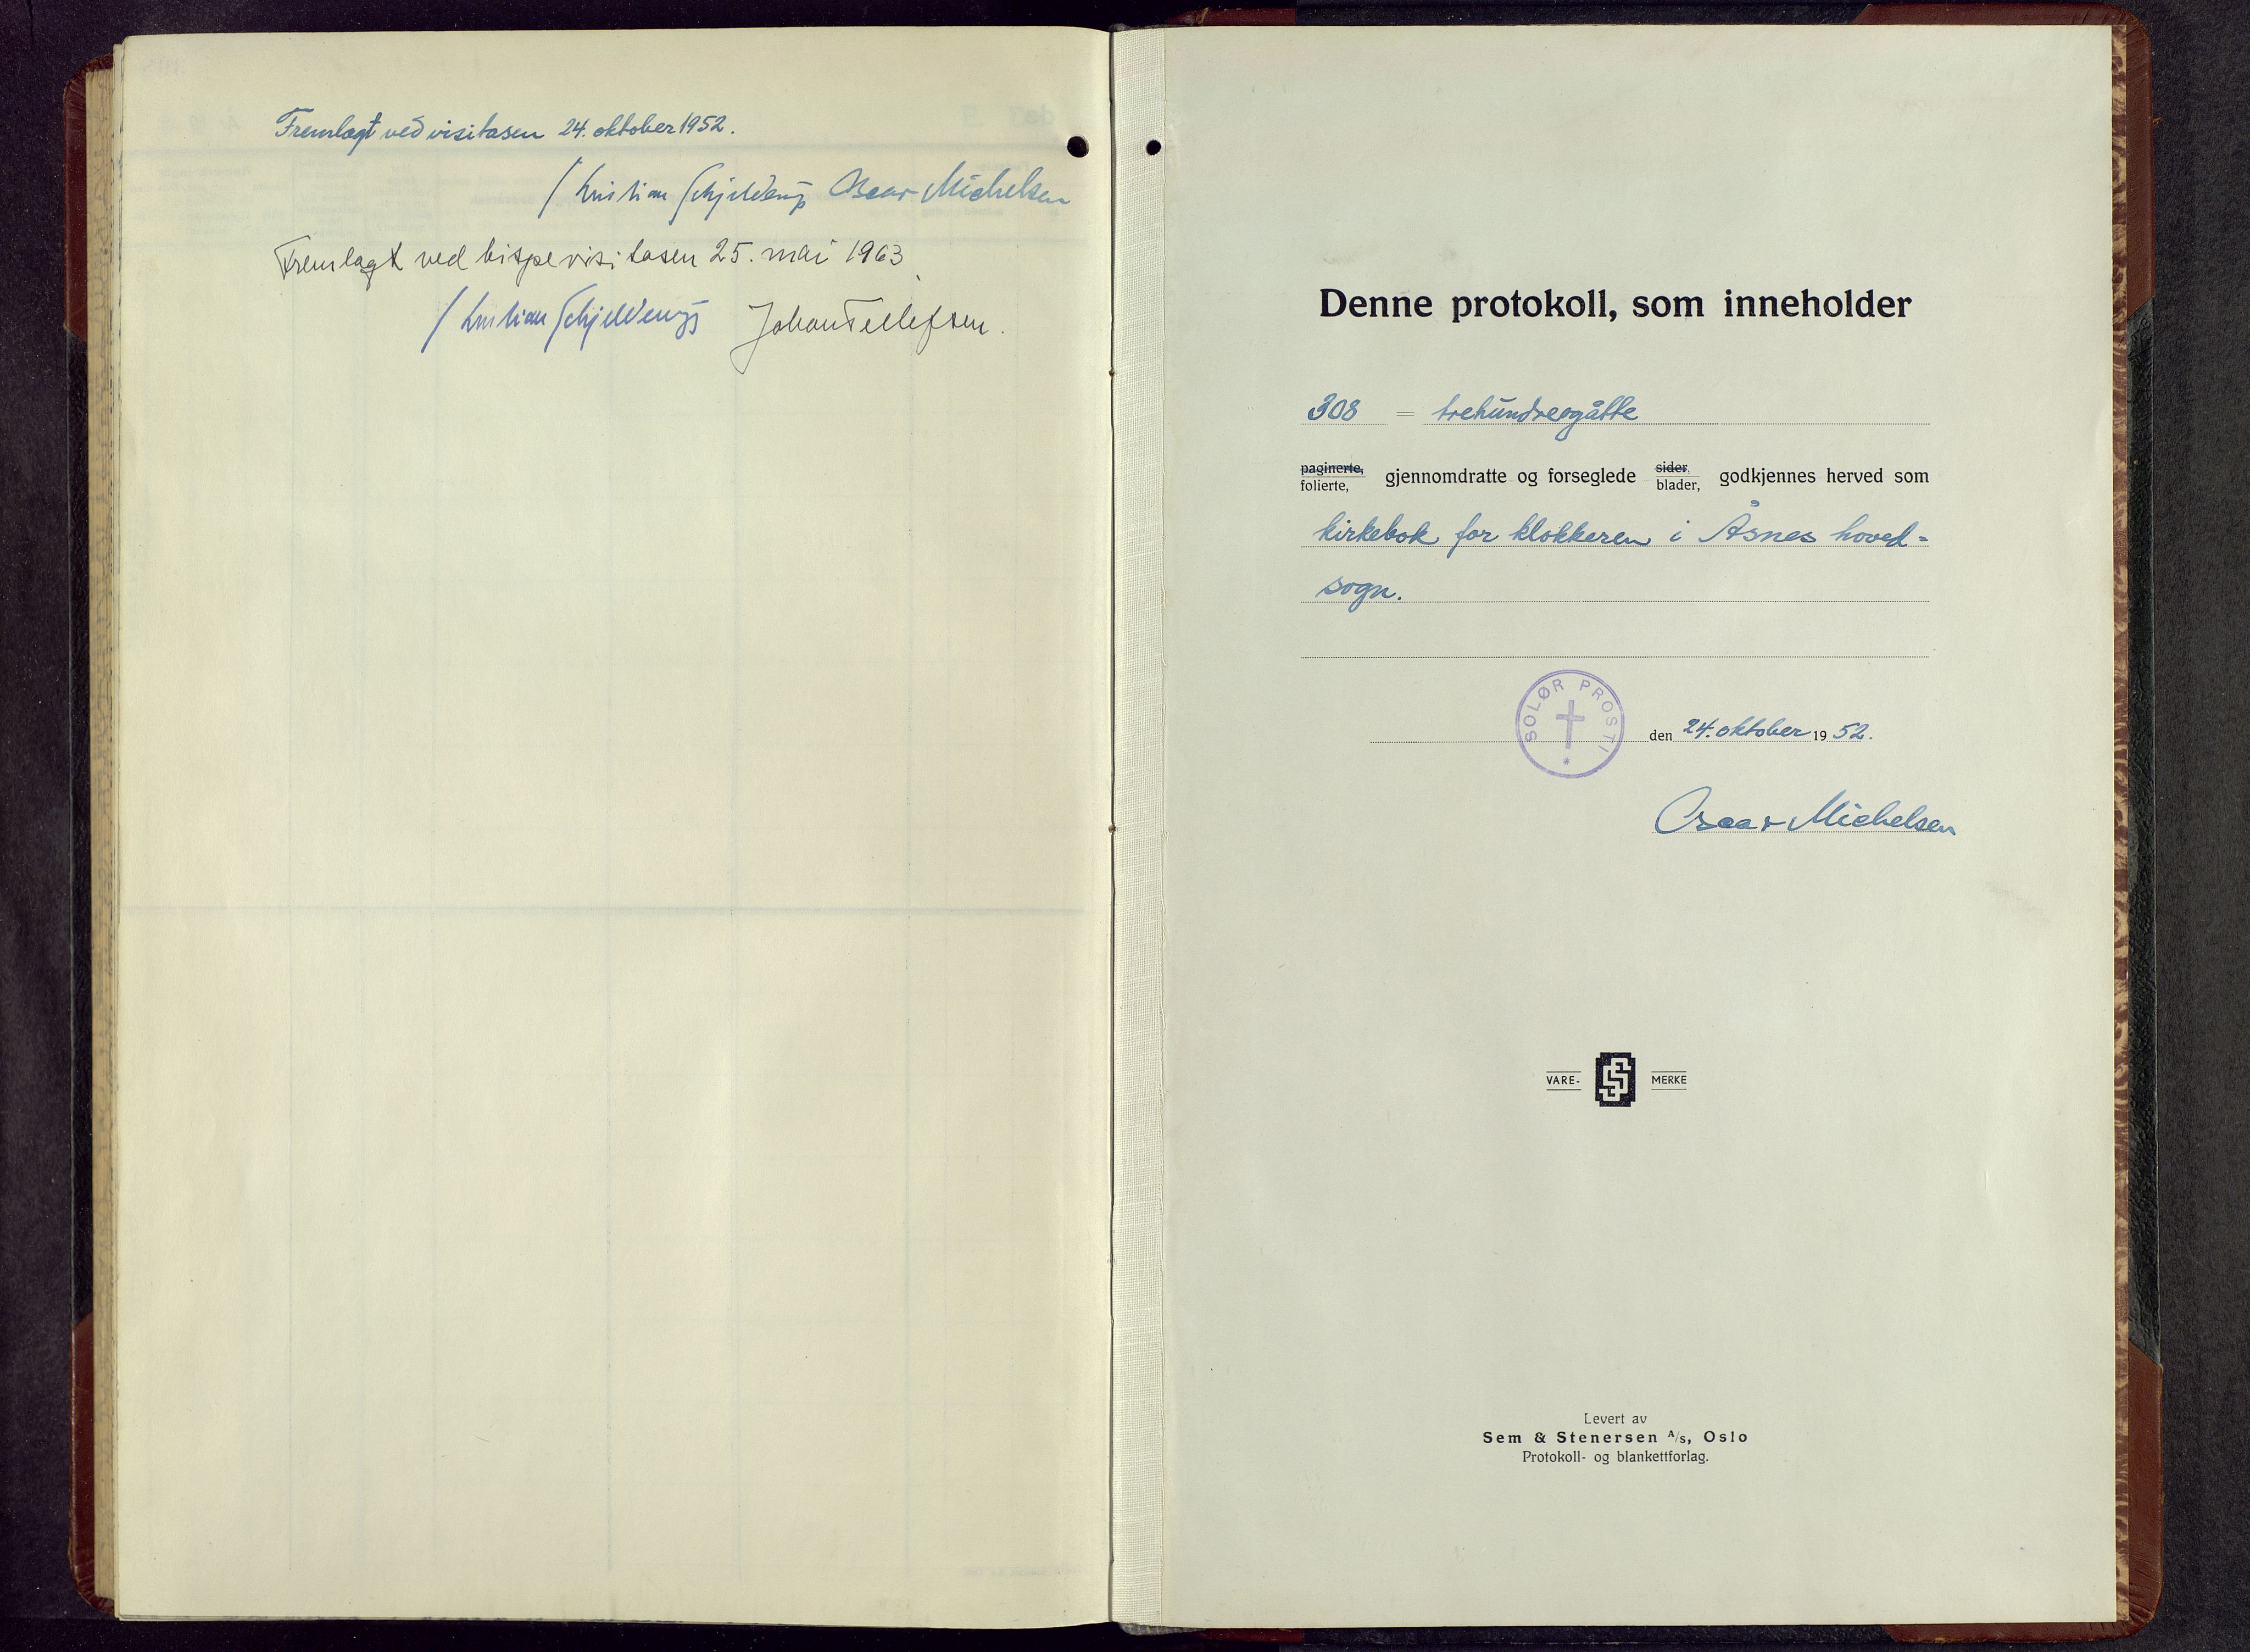 Fremlagt ved visitasen 24. oktober 1952.
/ Kristian Schjelderup Oscar Michelsen
Fremlagt ved bispevisitasen 25. mai 1963.
/ Kristian Schjelderup Johan Tellefsen.
Denne protokoll, som inneholder
308 = trehundreogåtte
paginerte, folierte, gjennomdratte og forseglede sider, blader, godkjennes herved som
kirkebok for klokkeren i Åsnes hoved-
sogn.
SOLØR PROSTI
den 24. oktober 1952.
Oscar Michelsen
VARE- SS MERKE
Levert av
Sem & Stenersen A/s, Oslo
Protokoll- og blankettforlag.